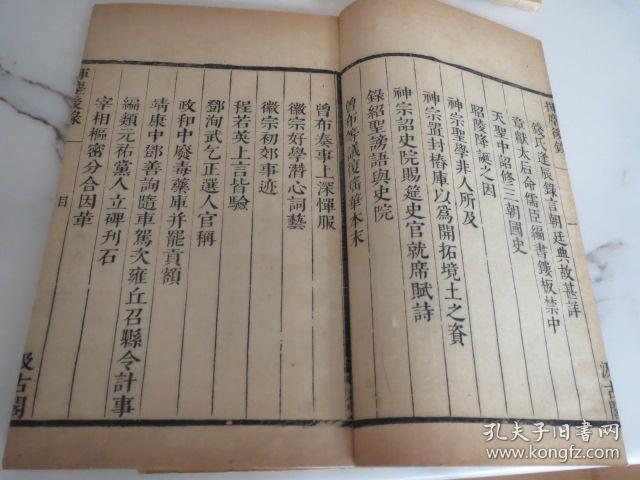 揮麈後錄
一
錢氏逢辰錄言朝廷典故甚詳
章獻太后命儒臣編書鏤板禁中
天聖中詔修三朝國史
昭陵降誕之因
神宗聖學非人所及
神宗置封樁庫以為開拓境土之資
神宗詔史院賜筵史官就席賦詩
錄紹聖謗語與史院
曾布等議復瑤華本末
汲古閣
曾布奏事上深憚服
徽宗好學潛心詞藝
徽宗初郊事迹
程若英上言皆驗
鄧洵武乞正選人官稱
政和中廢毒藥庫并罷貢額
靖康中鄧善詢隨車駕次雍丘召縣令計事
編類元祐黨人立碑刊石
宰相樞密分合因革
揮麈後錄
目
汲古閣
孔夫子旧书网